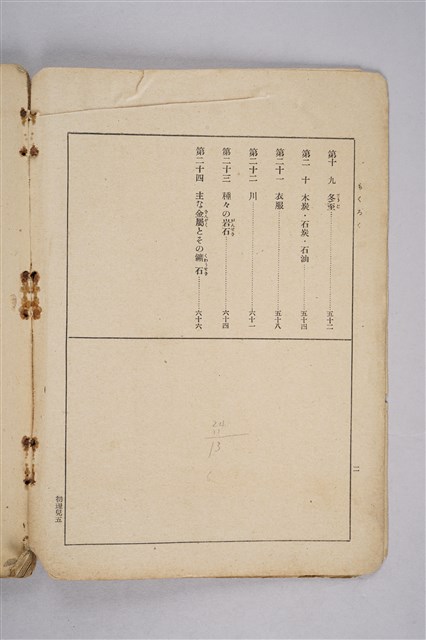 もくろく
第十九 冬至…………五十二
第二十 木炭・石炭・石油…………五十四
第二十一 衣服…………五十八
第二十二 川…………六十一
第二十三 種々の岩石…………六十四
第二十四 主な金屬とその鑛石…………六十六
二
13